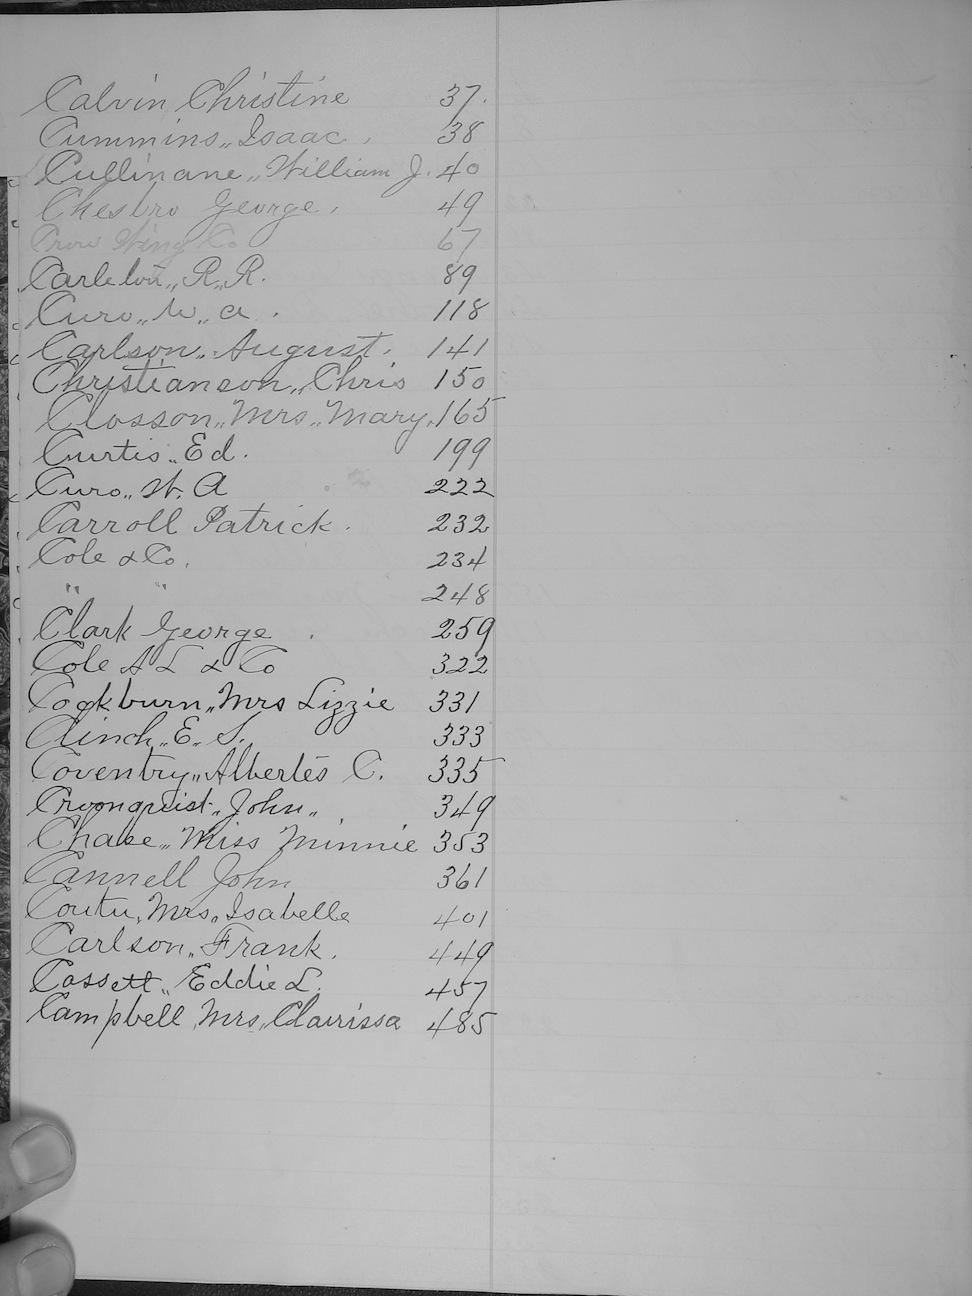 Calvin Christine 37.
Cummins,, Isaac. 38
Cullinane,, William J. 40
Chesbro George. 49
Crow Wing Co 67
Carleton,, R,, R. 89
Curo,, W,, A. 118
Carlson,, August. 141
Christianson,, Chris 150
Closson,, Mrs,, Mary. 165
Curtis,, Ed. 199
Curo,, W. A 222
Carroll Patrick. 232
Cole & Co. 234
" " 248
Clark George. 259
Cole A L & Co 322
Cockburn,, Mrs Lizzie 331
Clinch,, E,, S. 333
Coventry,, Albertes C. 335
Cronquist,, John,, 349
Chase,, Miss Minnie 353
Cannell John 361
Coutu,, Mrs,, Isabelle 401
Carlson,, Frank. 449
Cossett,, Eddie L. 457
Campbell,, Mrs,, Clarrissa 485